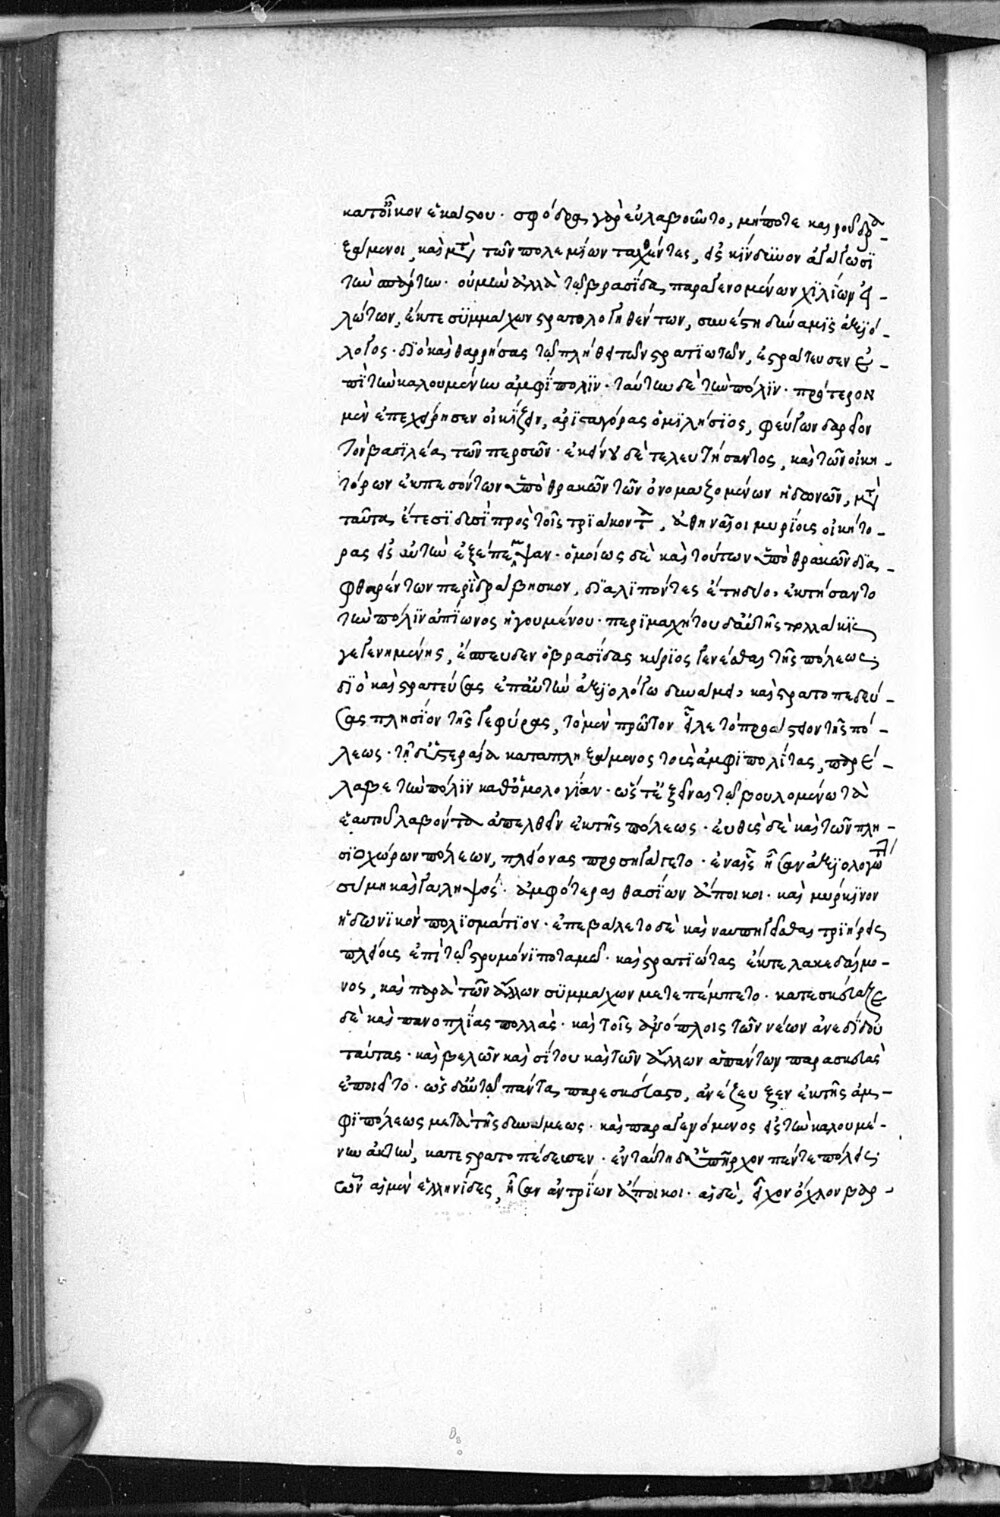 κατοῖκον ἑκάστου· σφόδρα γὰρ εὐλαβοῦντο, μήποτε καιροῦ δρα-
ξάμενοι, καὶ μετὰ τῶν πολεμίων ταχθέντες, εἰς κίνδϋνον ἀγάγωσϊ
τὴν σπάρτην· οὐ μὴν ἀλλὰ τῷ βρασΐδα παραγενομένων χϊλίων εἱ-
λώτων, ἔκτε σϋμμάχων στρατολογηθέντων, συνέστη δύναμϊς ἀξϊό-
λογος· δϊὸ καὶ θαρρήσας τῷ πλήθει τῶν στρατϊωτῶν, ἐστράτευσεν ἐ-
πϊ τὴν καλουμένην ἀμφΐπολϊν· ταύτην δὲ τὴν πόλϊν· πρότερον
μὲν ἐπεχείρησεν οἰκΐζειν, ἀρϊσταγόρας ὁ μϊλήσϊος, φεύγων δαρεῖον
τὸν βασϊλέα τῶν περσῶν· ἐκείνου δὲ τελευτήσαντος, καὶ τῶν οἰκη-
τόρων ἐκπεσόντων ὑπὸ θρακῶν τῶν ὀνομαζομένων ἠδωνῶν, μετὰ
ταῦτα ἔτεσϊ δυσϊ πρὸς τοῖς τρϊάκοντα, ἀθηναῖοι μυρίους οἰκήτο-
ρας εἰς αὐτὴν ἐξέπεμψαν· ὁμοίως δὲ καὶ τούτων ὑπὸ θρακῶν δϊα-
φθαρέντων περϊ δράβησκον, δϊαλϊπόντες ἔτη δύο, ἐκτήσαντο
τὴν πόλϊν ἁπΐωνος ἡγουμένου· περϊμαχήτου δ' αὐτῆς πολλάκϊς
γεγενημένης, ἔσπευδεν ὁ βρασίδας κύρϊος γενέσθαι τῆς πόλεως·
δϊὸ καὶ στρατεύσας ἐπ' αὐτὴν ἀξϊολόγω δυνάμει, καὶ στρατοπεδεύ-
σας πλησΐον τῆς γεφύρας, τὸ μὲν πρῶτον εἷλε τὸ προάστειον τῆς πό-
λεως· τῇ δ' ὑστεραία καταπληξάμενος τοὺς ἀμφϊπολίτας, παρέ-
λαβε τὴν πόλϊν καθ' ὁμολογίαν· ὥστ' ἐξεῖναι τῷ βουλομένω τὰ
ἑαυτοῦ λαβόντα ἀπελθεῖν ἐκ τῆς πόλεως· εὐθὺς δὲ καὶ τῶν πλη-
σϊοχώρων πόλεων, πλείονας προσηγάγετο· ἐν αἷς ἦσαν ἀξϊολογώταται
σύμη καὶ γαληψός· ἀμφότεραι θασΐων ἄποικοι· καὶ μυρκϊνον
ἠδωνϊκὸν πολϊσμάτϊον· ἐπεβάλετο δὲ καὶ ναυπηγεῖσθαι τρϊήρεις
πλείους ἐπὶ τῷ στρυμόνϊ ποταμῷ· καὶ στρατϊώτας ἔκτε λακεδαίμο-
νος, καὶ παρὰ τῶν ἄλλων σϋμμάχων μετεπέμπετο· κατεσκεύαζε
δὲ καὶ πανοπλΐας πολλὰς· καὶ τοῖς ἀνόπλοις τῶν νέων ἀνεδΐδου
ταύτας· καὶ βελῶν καὶ σΐτου καὶ τῶν ἄλλων ἁπάντων παρασκευὰς
ἐποιεῖτο· ὡς δ' αὐτῷ πάντα παρεσκεύαστο, ἀνέζευξεν ἐκ τῆς ἀμ-
φϊπόλεως μετὰ τῆς δυνάμεως· καὶ παραγενόμενος εἰς τὴν καλουμέ-
νην ἀκτὴν, κατεστρατοπέδευσεν· ἐν ταύτη δ' ὑπῆρχον πέντε πόλεις·
ὧν αἱ μὲν ἑλληνίδες, ἦσαν ἀντρΐων ἄποικοι· αἱ δὲ, εἶχον ὄχλον βαρ-